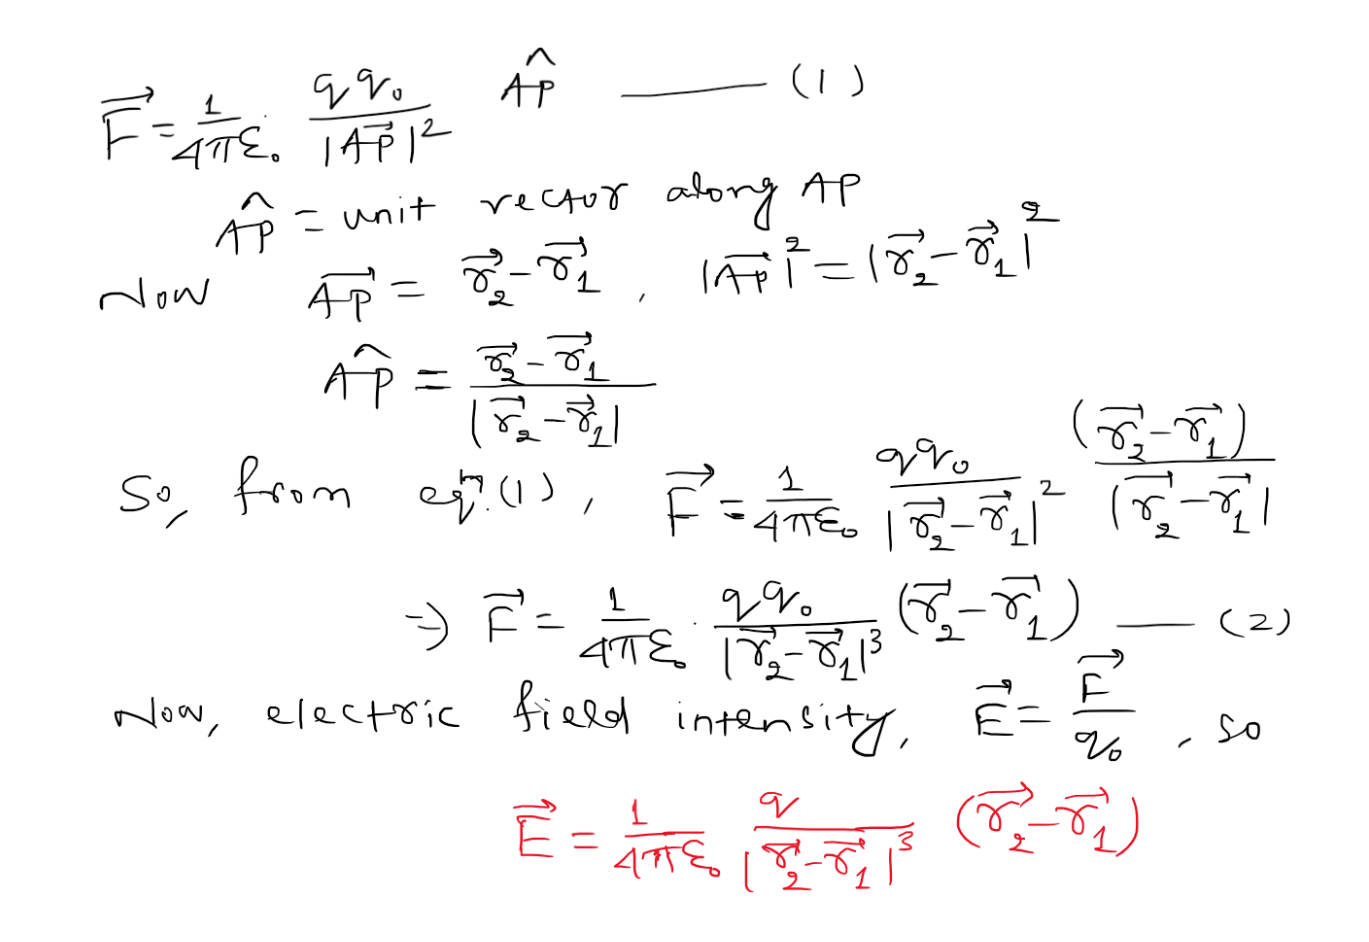 $\vec{F} = \frac{1}{4\pi\varepsilon_0} \frac{q q_0}{|\vec{AP}|^2} \hat{AP}$ —— (1)
$\hat{AP}$ = unit vector along AP
Now $\vec{AP} = \vec{r}_2 - \vec{r}_1$, $|\vec{AP}|^2 = |\vec{r}_2 - \vec{r}_1|^2$
$\hat{AP} = \frac{\vec{r}_2 - \vec{r}_1}{|\vec{r}_2 - \vec{r}_1|}$
So, from eqn.(1), $\vec{F} = \frac{1}{4\pi\varepsilon_0} \frac{q q_0}{|\vec{r}_2 - \vec{r}_1|^2} \frac{(\vec{r}_2 - \vec{r}_1)}{|\vec{r}_2 - \vec{r}_1|}$
$\Rightarrow \vec{F} = \frac{1}{4\pi\varepsilon_0} \cdot \frac{q q_0}{|\vec{r}_2 - \vec{r}_1|^3} (\vec{r}_2 - \vec{r}_1)$ —— (2)
Now, electric field intensity, $\vec{E} = \frac{\vec{F}}{q_0}$, so
$\vec{E} = \frac{1}{4\pi\varepsilon_0} \frac{q}{|\vec{r}_2 - \vec{r}_1|^3} (\vec{r}_2 - \vec{r}_1)$